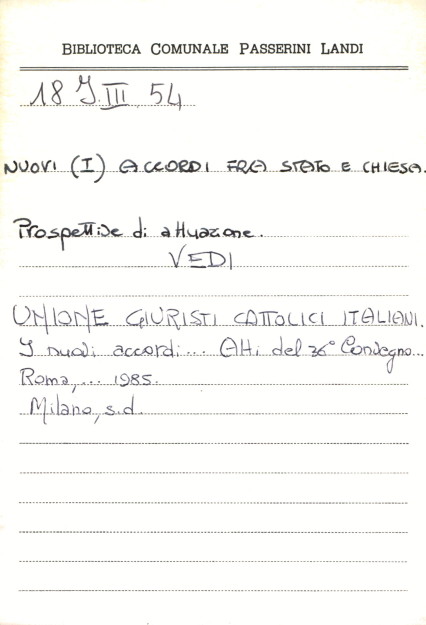 BIBLIOTECA COMUNALE PASSERINI LANDI
18 I.III.54
NUOVI (I) ACCORDI FRA STATO E CHIESA.
Prospettive di attuazione.
VEDI
UNIONE GIURISTI CATTOLICI ITALIANI.
I nuovi accordi... Atti del 36° Convegno...
Roma,... 1985.
Milano, s.d.